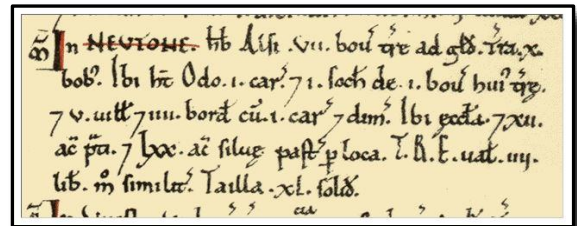 M̃ In NEUTONE. h̄b Alsi .vii. bou᷎ t̄re ad gl̄d. Tr̄a .x.
bob᷎. Ibi h̄t Odo .i. car᷎. ⁊ i. soch̄ de .i. bou᷎ hui᷎ t̄rę.
⁊ v. uill̄ ⁊ iiii. bord̄ cū .i. car᷎ ⁊ dim᷎. Ibi ęccl̄a. ⁊ xii.
ac̄ p̄ti. ⁊ lxx. ac̄ siluę past᷎ p̱ loca. T.R.E. ual᷎. iiij.
lib̄. m̊ similit᷎. Tailla .xl. solid̄.